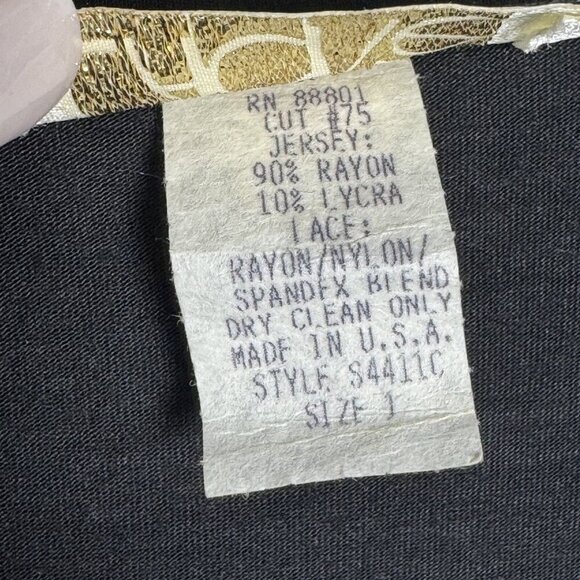 RN 88801
CUT #75
JERSEY:
90% RAYON
10% LYCRA
LACE:
RAYON/NYLON/
SPANDEX BLEND
DRY CLEAN ONLY
MADE IN U.S.A.
STYLE S4411C
SIZE 1